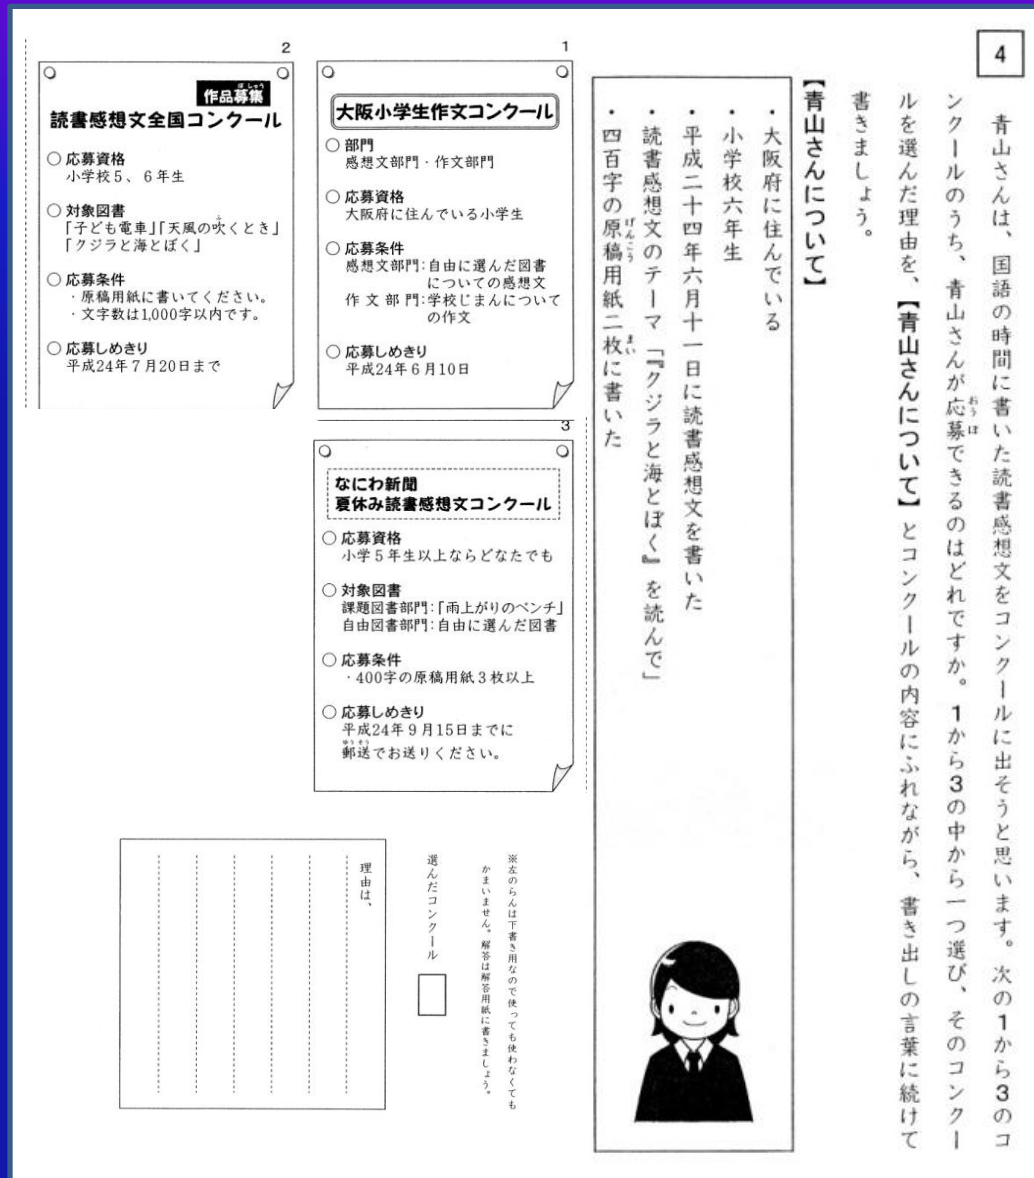 4
青山さんは、国語の時間に書いた読書感想文をコンクールに出そうと思います。次の1から3のコ
ンクールのうち、青山さんが応募できるのはどれですか。1から3の中から一つ選び、そのコンクー
ルを選んだ理由を、【青山さんについて】とコンクールの内容にふれながら、書き出しの言葉に続けて
書きましょう。
おうぼ
【青山さんについて】
・大阪府に住んでいる
・小学校六年生
・平成二十四年六月十一日に読書感想文を書いた
・読書感想文のテーマ「『クジラと海とぼく』を読んで」
・四百字の原稿用紙二枚に書いた
げんこう
まい
1
大阪小学生作文コンクール
○部門
感想文部門・作文部門
○応募資格
大阪府に住んでいる小学生
○応募条件
感想文部門:自由に選んだ図書
についての感想文
作文部門:学校じまんについて
の作文
○応募しめきり
平成24年6月10日
2
ぼしゅう
作品募集
読書感想文全国コンクール
○応募資格
小学校5、6年生
○対象図書
「子ども電車」「天風の吹くとき」
ふ
「クジラと海とぼく」
○応募条件
・原稿用紙に書いてください。
・文字数は1,000字以内です。
○応募しめきり
平成24年7月20日まで
3
なにわ新聞
夏休み読書感想文コンクール
○応募資格
小学5年生以上ならどなたでも
○対象図書
課題図書部門:「雨上がりのベンチ」
自由図書部門:自由に選んだ図書
○応募条件
・400字の原稿用紙3枚以上
○応募しめきり
平成24年9月15日までに
ゆうそう
郵送でお送りください。
※左のらんは下書き用なので使っても使わなくても
かまいません。解答は解答用紙に書きましょう。
選んだコンクール
理由は、